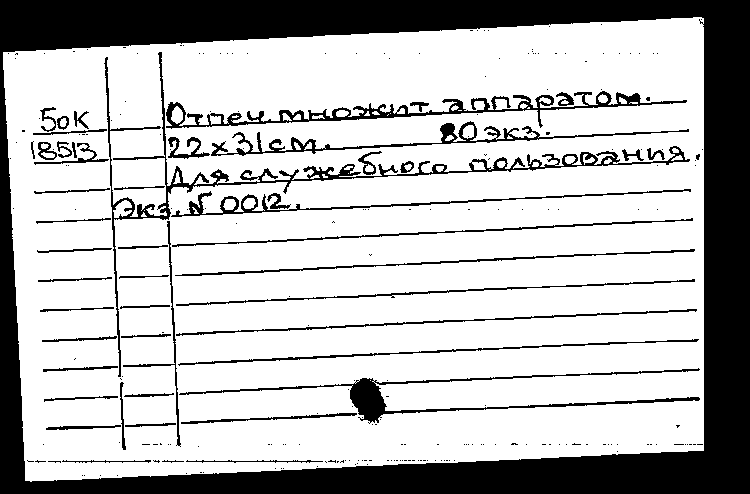 50К Отпеч. множит. аппаратом.
18513 22х31см. 80 экз.
Для служебного пользования.
Экз. № 0012.